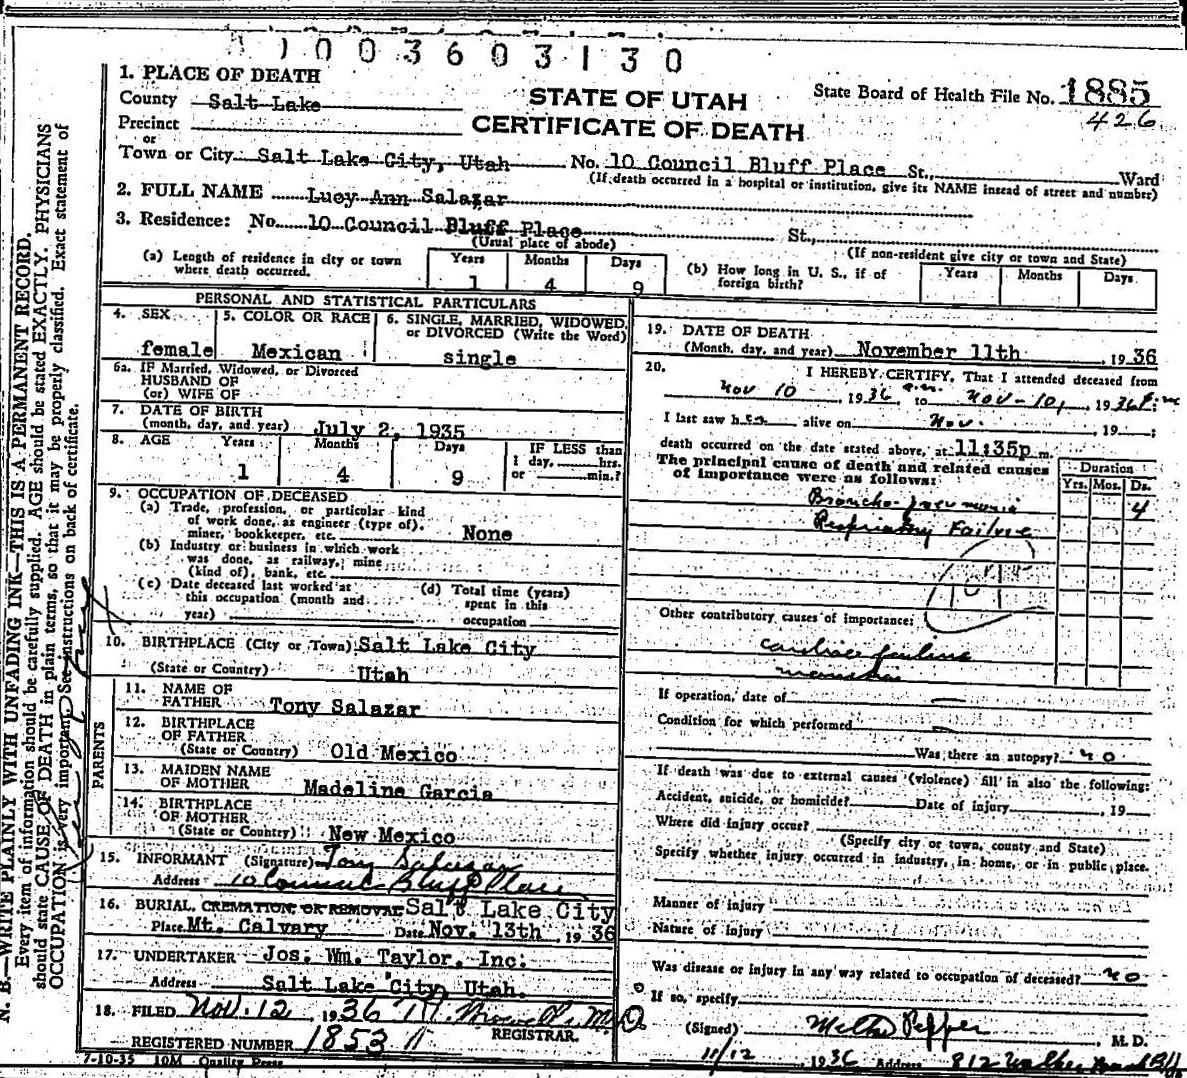 1003603130
1. PLACE OF DEATH
County Salt Lake
STATE OF UTAH
State Board of Health File No. 1885
426
Precinct
CERTIFICATE OF DEATH
or
Town or City Salt Lake City, Utah No. 10 Council Bluff Place St., Ward
(If death occurred in a hospital or institution, give its NAME insead of street and number)
2. FULL NAME Lucy Ann Salazar
3. Residence: No. 10 Council Bluff Place St.,
(Usual place of abode) (If non-resident give city or town and State)
(a) Length of residence in city or town where death occurred. Years 1 Months 4 Days 9
(b) How long in U. S., if of foreign birth? Years Months Days
PERSONAL AND STATISTICAL PARTICULARS
4. SEX female
5. COLOR OR RACE Mexican
6. SINGLE, MARRIED, WIDOWED, or DIVORCED (Write the Word) single
6a. IF Married, Widowed, or Divorced
HUSBAND OF
(or) WIFE OF
7. DATE OF BIRTH
(month, day, and year) July 2, 1935
8. AGE Years 1 Months 4 Days 9
IF LESS than
1 day, hrs.
or min.?
9. OCCUPATION OF DECEASED
(a) Trade, profession, or particular kind
of work done, as engineer (type of),
miner, bookkeeper, etc. None
(b) Industry or business in which work
was done, as railway, mine
(kind of), bank, etc.
(c) Date deceased last worked at
this occupation (month and
year)
(d) Total time (years)
spent in this
occupation
10. BIRTHPLACE (City or Town) Salt Lake City
(State or Country) Utah
PARENTS
11. NAME OF
FATHER Tony Salazar
12. BIRTHPLACE
OF FATHER
(State or Country) Old Mexico
13. MAIDEN NAME
OF MOTHER Madeline Garcia
14. BIRTHPLACE
OF MOTHER
(State or Country) New Mexico
15. INFORMANT (Signature) Tony Salazar
Address 10 Council Bluff Place
16. BURIAL, CREMATION, OR REMOVAL Salt Lake City
Place Mt. Calvary Date Nov. 13th, 1936
17. UNDERTAKER Jos. Wm. Taylor, Inc.
Address Salt Lake City, Utah.
18. FILED Nov. 12 1936 M.D.
REGISTRAR.
REGISTERED NUMBER 1853
7-10-35 10M Quality Press
19. DATE OF DEATH
(Month, day, and year) November 11th, 1936
20. I HEREBY CERTIFY, That I attended deceased from
Nov 10, 1936 a.m. to Nov-10, 1936 P.m
I last saw her alive on Nov. , 19 ;
death occurred on the date stated above, at 11:35p m.
The principal cause of death and related causes
of importance were as follows:
Duration
Yrs. Mos. Ds.
Broncho-pneumonia 4
Respiratory Failure
Other contributory causes of importance:
cardiac failure
If operation, date of —
Condition for which performed —
Was there an autopsy? no
If death was due to external causes (violence) fill in also the following:
Accident, suicide, or homicide? Date of injury , 19
Where did injury occur?
(Specify city or town, county and State)
Specify whether injury occurred in industry, in home, or in public place.
Manner of injury
Nature of injury
Was disease or injury in any way related to occupation of deceased? no
If so, specify
(Signed) Pepper, M. D.
11/12 1936 Address 812 Walker Bank Bldg
N. B.—WRITE PLAINLY WITH UNFADING INK—THIS IS A PERMANENT RECORD.
Every item of information should be carefully supplied. AGE should be stated EXACTLY. PHYSICIANS
should state CAUSE OF DEATH in plain terms, so that it may be properly classified. Exact statement of
OCCUPATION is very important. See instructions on back of certificate.